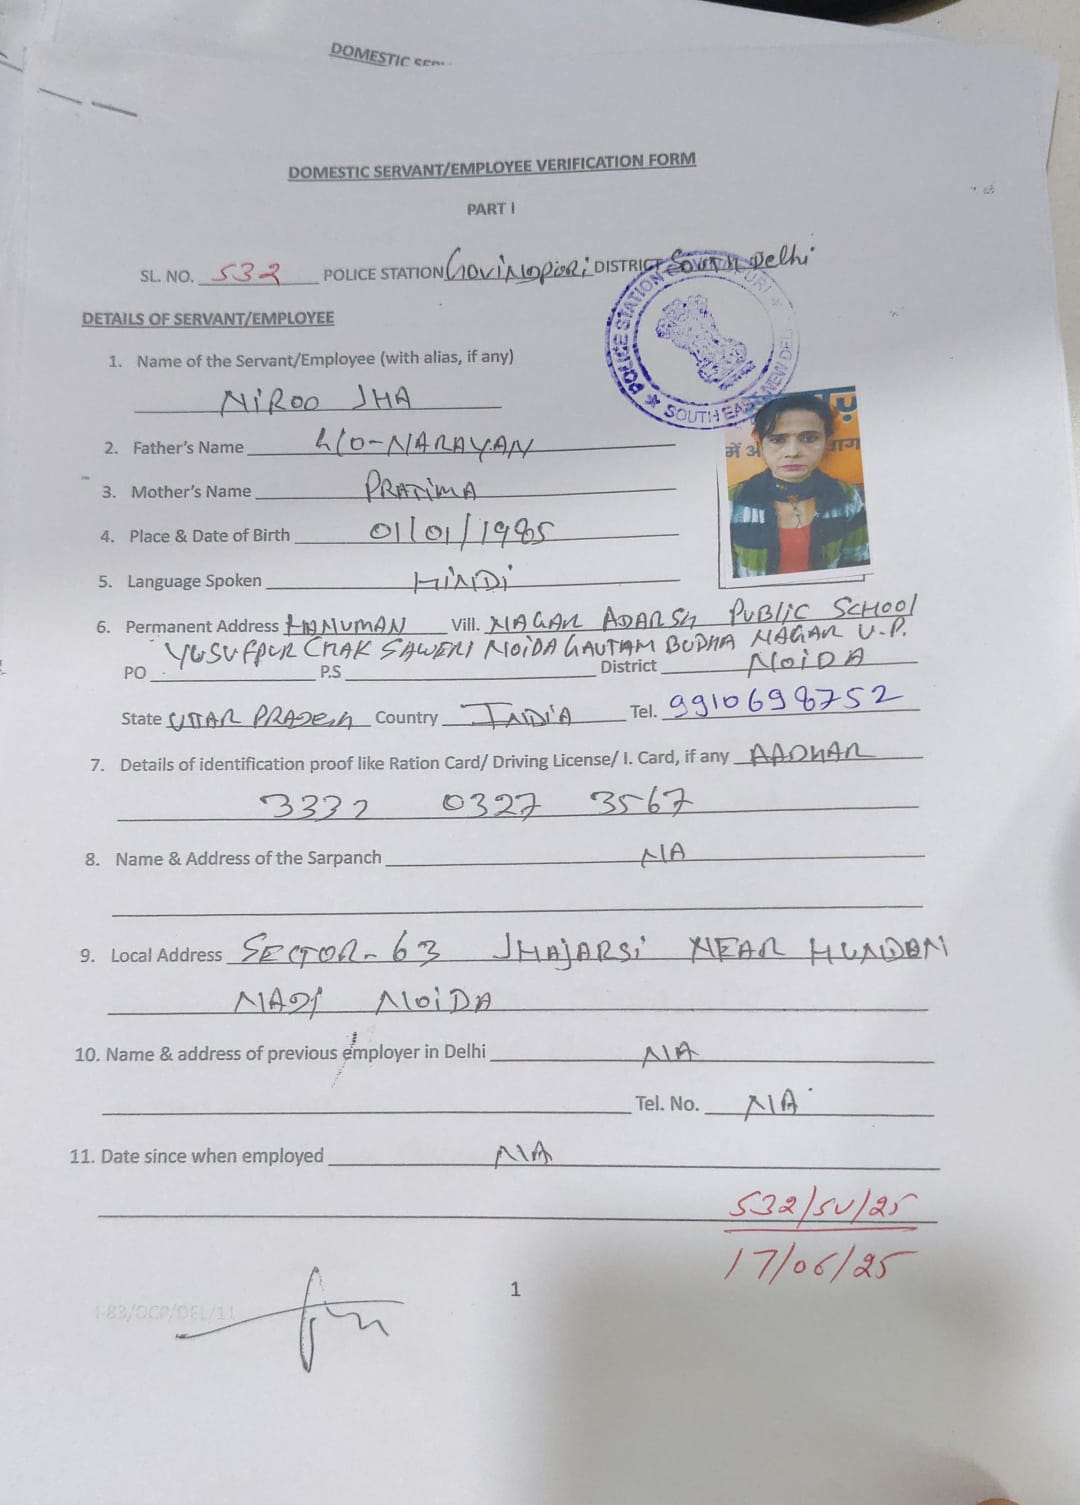 DOMESTIC SER
DOMESTIC SERVANT/EMPLOYEE VERIFICATION FORM
PART I
SL. NO. 532 POLICE STATION Govindpuri DISTRICT South Delhi
POLICE STATION GOVINDPURI
SOUTH EAST NEW DELHI
DETAILS OF SERVANT/EMPLOYEE
1. Name of the Servant/Employee (with alias, if any)
NIROO JHA
2. Father's Name NARAYAN
में अ
3. Mother's Name PRATIMA
4. Place & Date of Birth 01/01/1985
5. Language Spoken HINDI
6. Permanent Address HANUMAN Vill. NAGAR ADARSH PUBLIC SCHOOL
YUSUFPUR CHAK SAWERI NOIDA GAUTAM BUDHA NAGAR U.P.
PO P.S District NOIDA
State UTTAR PRADESH Country INDIA Tel. 9910698752
7. Details of identification proof like Ration Card/ Driving License/ I. Card, if any AADHAR
3332 0327 3567
8. Name & Address of the Sarpanch NA
9. Local Address SECTOR-63 JHAJARSI NEAR HUNDON
NADI NOIDA
10. Name & address of previous employer in Delhi NA
Tel. No. NA
11. Date since when employed NA
532/SV/25
17/06/25
1
I-83/DCP/DEL/11